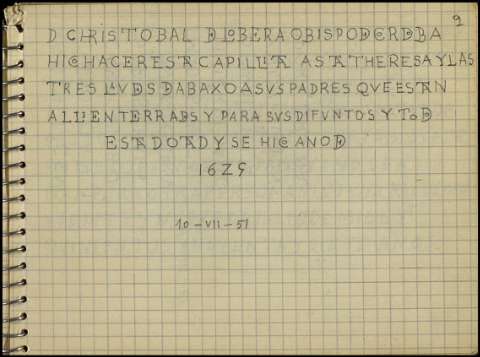 D CHRISTOBAL DE LOBERA OBISPO DE CORDOBA
HIÇO HACER ESTA CAPILLA A STA THERESA Y LAS
TRES LAUDES DABAXO A SVS PADRES QVE ESTAN
ALLI ENTERRADOS Y PARA SVS DIFVNTOS Y TODO
ESTA DOTADO Y SE HIÇO ANO DE
1625
10-VII-51